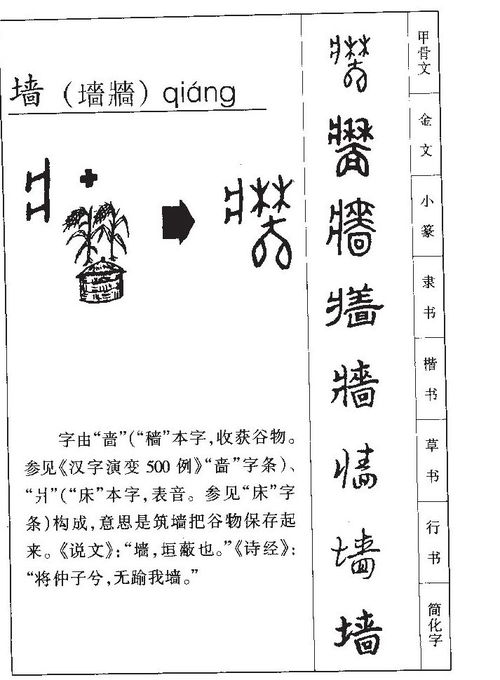 墙（墻牆）qiáng
字由“啬”(“穑”本字,收获谷物。
参见《汉字演变 500 例》“啬”字条)、
“爿”(“床”本字,表音。参见“床”字
条)构成,意思是筑墙把谷物保存起
来。《说文》:“墙,垣蔽也。”《诗经》:
“将仲子兮,无踰我墙。”
甲骨文
金文
小篆
牆 隶书
牆 楷书
草书
墙 行书
墙 简化字